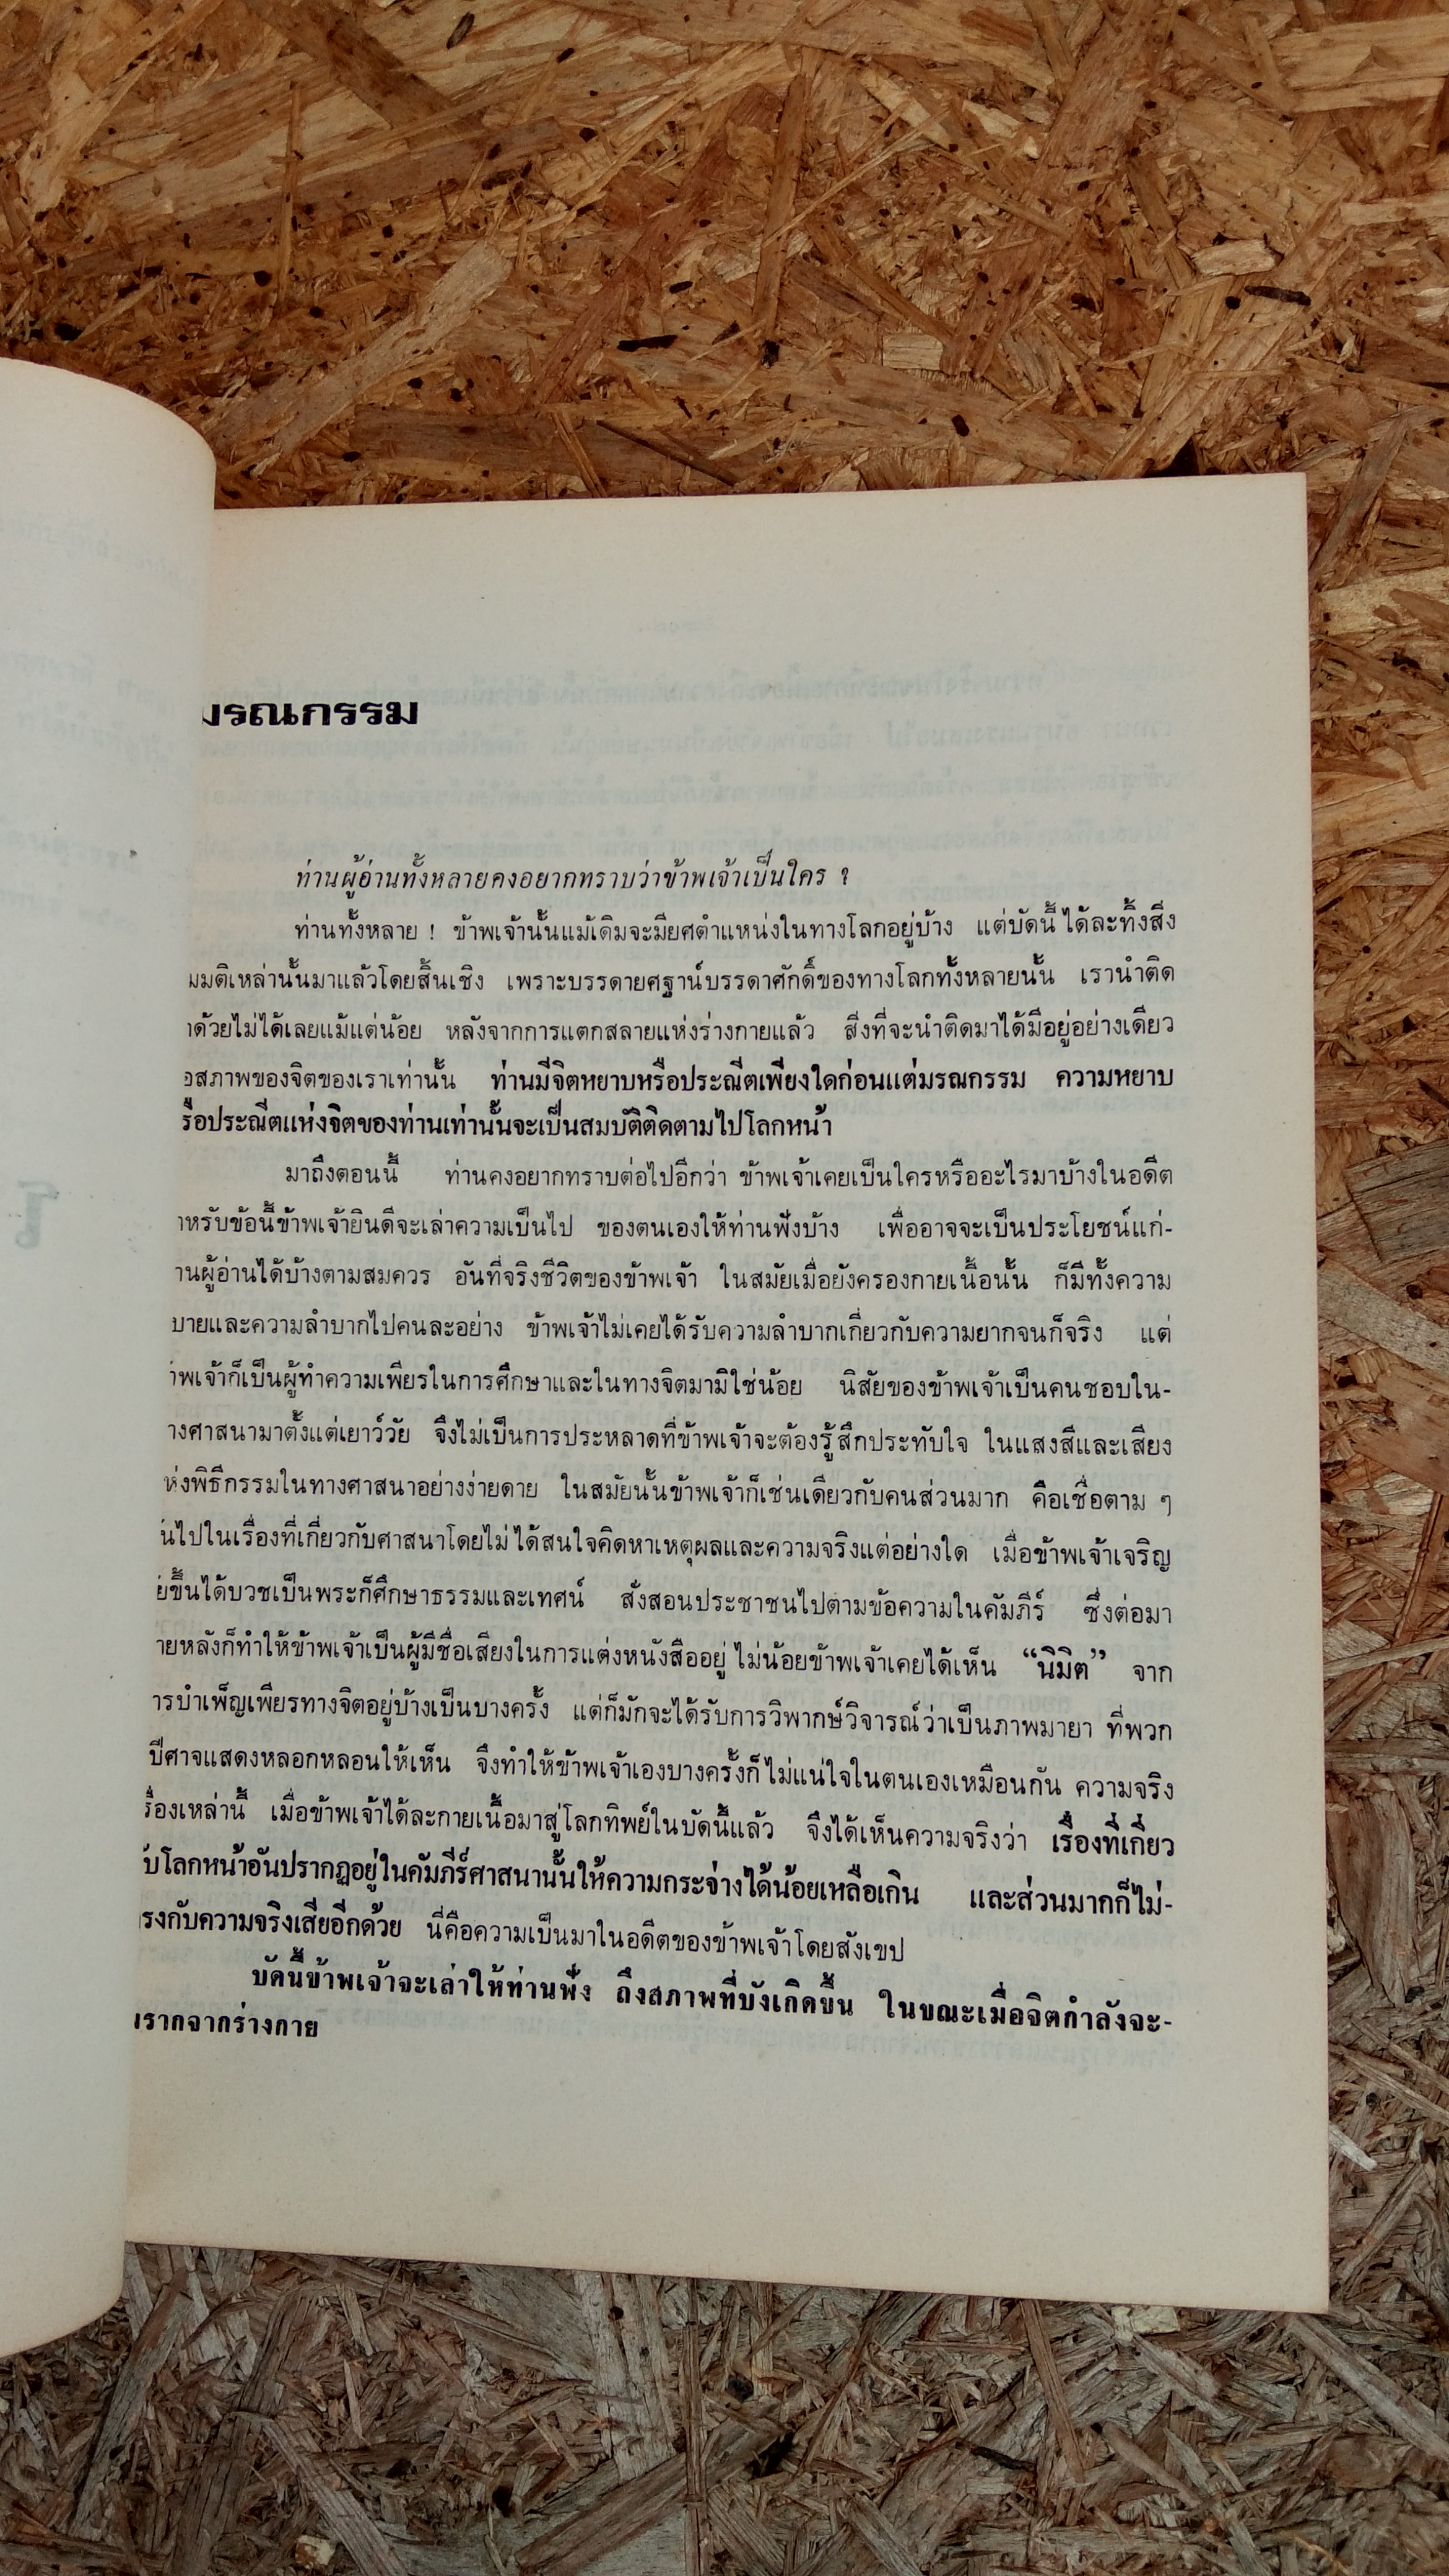 มรณกรรม
ท่านผู้อ่านทั้งหลายคงอยากทราบว่าข้าพเจ้าเป็นใคร ?
ท่านทั้งหลาย ! ข้าพเจ้านั้นแม้เดิมจะมียศตำแหน่งในทางโลกอยู่บ้าง แต่บัดนี้ได้ละทิ้งสิ่ง
มมติเหล่านั้นมาแล้วโดยสิ้นเชิง เพราะบรรดายศฐาน์บรรดาศักดิ์ของทางโลกทั้งหลายนั้น เรานำติด
าด้วยไม่ได้เลยแม้แต่น้อย หลังจากการแตกสลายแห่งร่างกายแล้ว สิ่งที่จะนำติดมาได้มีอยู่อย่างเดียว
อสภาพของจิตของเราเท่านั้น ท่านมีจิตหยาบหรือประณีตเพียงใดก่อนแต่มรณกรรม ความหยาบ
รือประณีตแห่งจิตของท่านเท่านั้นจะเป็นสมบัติติดตามไปโลกหน้า
มาถึงตอนนี้ ท่านคงอยากทราบต่อไปอีกว่า ข้าพเจ้าเคยเป็นใครหรืออะไรมาบ้างในอดีต
าหรับข้อนี้ข้าพเจ้ายินดีจะเล่าความเป็นไป ของตนเองให้ท่านฟังบ้าง เพื่ออาจจะเป็นประโยชน์แก่-
านผู้อ่านได้บ้างตามสมควร อันที่จริงชีวิตของข้าพเจ้า ในสมัยเมื่อยังครองกายเนื้อนั้น ก็มีทั้งความ
บายและความลำบากไปคนละอย่าง ข้าพเจ้าไม่เคยได้รับความลำบากเกี่ยวกับความยากจนก็จริง แต่
าพเจ้าก็เป็นผู้ทำความเพียรในการศึกษาและในทางจิตมามิใช่น้อย นิสัยของข้าพเจ้าเป็นคนชอบใน-
างศาสนามาตั้งแต่เยาว์วัย จึงไม่เป็นการประหลาดที่ข้าพเจ้าจะต้องรู้สึกประทับใจ ในแสงสีและเสียง
ห่งพิธีกรรมในทางศาสนาอย่างง่ายดาย ในสมัยนั้นข้าพเจ้าก็เช่นเดียวกับคนส่วนมาก คือเชื่อตาม ๆ
นไปในเรื่องที่เกี่ยวกับศาสนาโดยไม่ได้สนใจคิดหาเหตุผลและความจริงแต่อย่างใด เมื่อข้าพเจ้าเจริญ
ยขึ้นได้บวชเป็นพระก็ศึกษาธรรมและเทศน์ สั่งสอนประชาชนไปตามข้อความในคัมภีร์ ซึ่งต่อมา
ายหลังก็ทำให้ข้าพเจ้าเป็นผู้มีชื่อเสียงในการแต่งหนังสืออยู่ไม่น้อยข้าพเจ้าเคยได้เห็น “นิมิต” จาก
ารบำเพ็ญเพียรทางจิตอยู่บ้างเป็นบางครั้ง แต่ก็มักจะได้รับการวิพากษ์วิจารณ์ว่าเป็นภาพมายา ที่พวก
ปีศาจแสดงหลอกหลอนให้เห็น จึงทำให้ข้าพเจ้าเองบางครั้งก็ไม่แน่ใจในตนเองเหมือนกัน ความจริง
รื่องเหล่านี้ เมื่อข้าพเจ้าได้ละกายเนื้อมาสู่โลกทิพย์ในบัดนี้แล้ว จึงได้เห็นความจริงว่า เรื่องที่เกี่ยว
ับโลกหน้าอันปรากฏอยู่ในคัมภีร์ศาสนานั้นให้ความกระจ่างได้น้อยเหลือเกิน และส่วนมากก็ไม่-
รงกับความจริงเสียอีกด้วย นี่คือความเป็นมาในอดีตของข้าพเจ้าโดยสังเขป
บัดนี้ข้าพเจ้าจะเล่าให้ท่านฟัง ถึงสภาพที่บังเกิดขึ้น ในขณะเมื่อจิตกำลังจะ-
รากจากร่างกาย